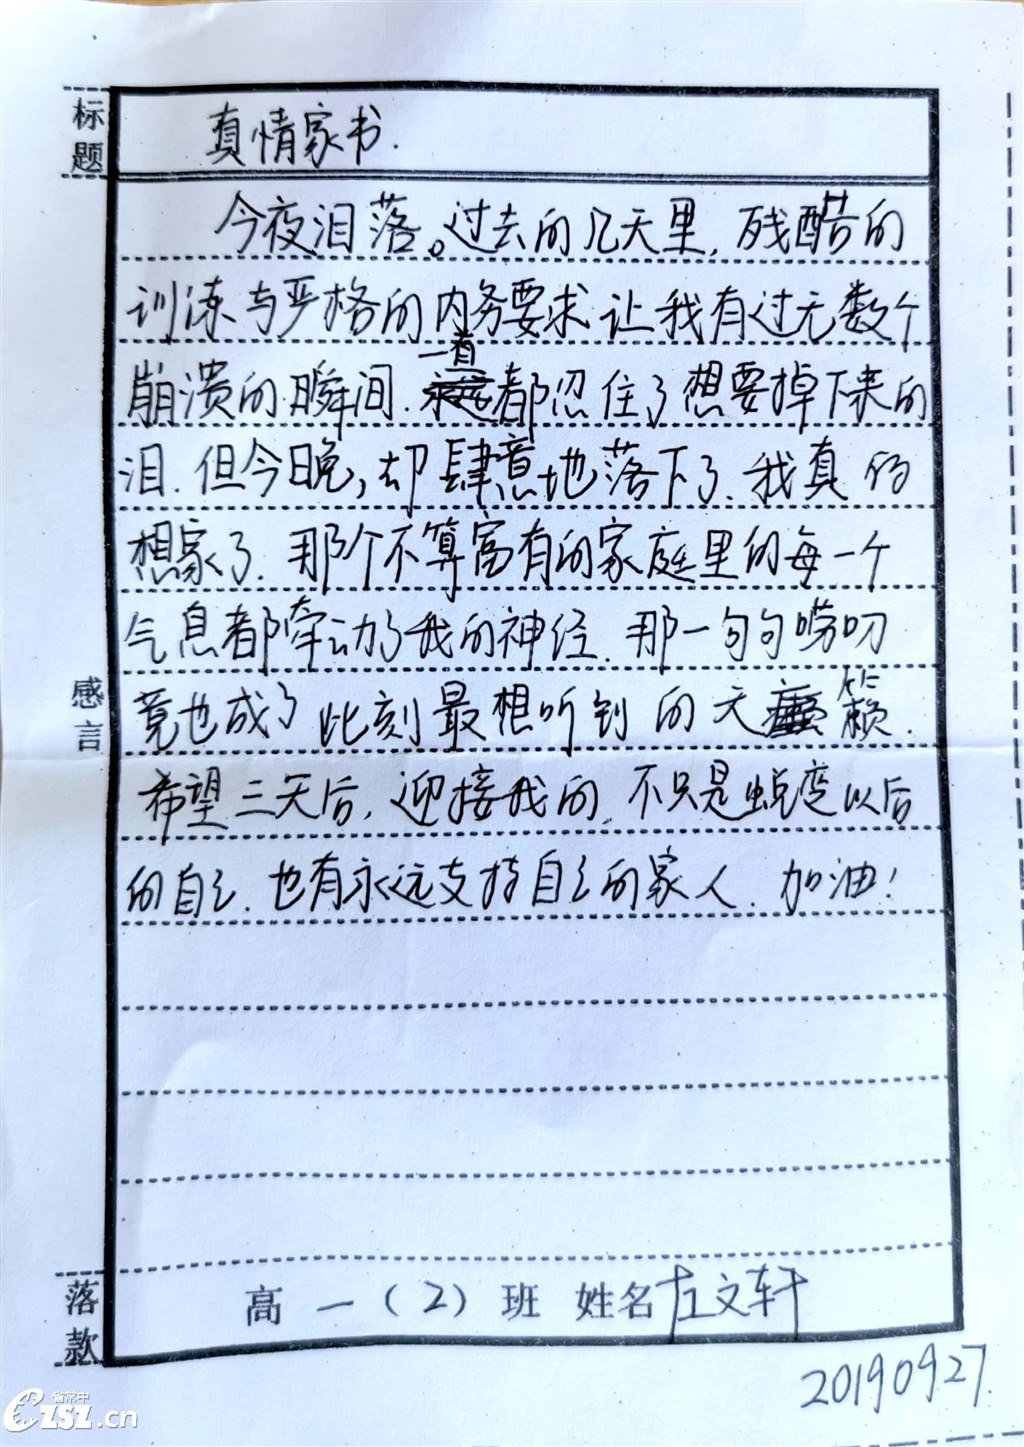 标题
真情家书.
今夜泪落。过去的几天里,残酷的
训练与严格的内务要求让我有过无数个
崩溃的瞬间.一直都忍住了想要掉下来的
泪.但今晚,却肆意地落下了.我真的
想家了.那个不算富有的家庭里的每一个
气息都牵动了我的神经.那一句句唠叨
竟也成了此刻最想听到的天籁.
感言
希望三天后,迎接我的,不只是蜕变以后
的自己.也有永远支持自己的家人.加油!
落款
高一(2)班 姓名左文轩
20190927.
省常中
CZSZ.cn